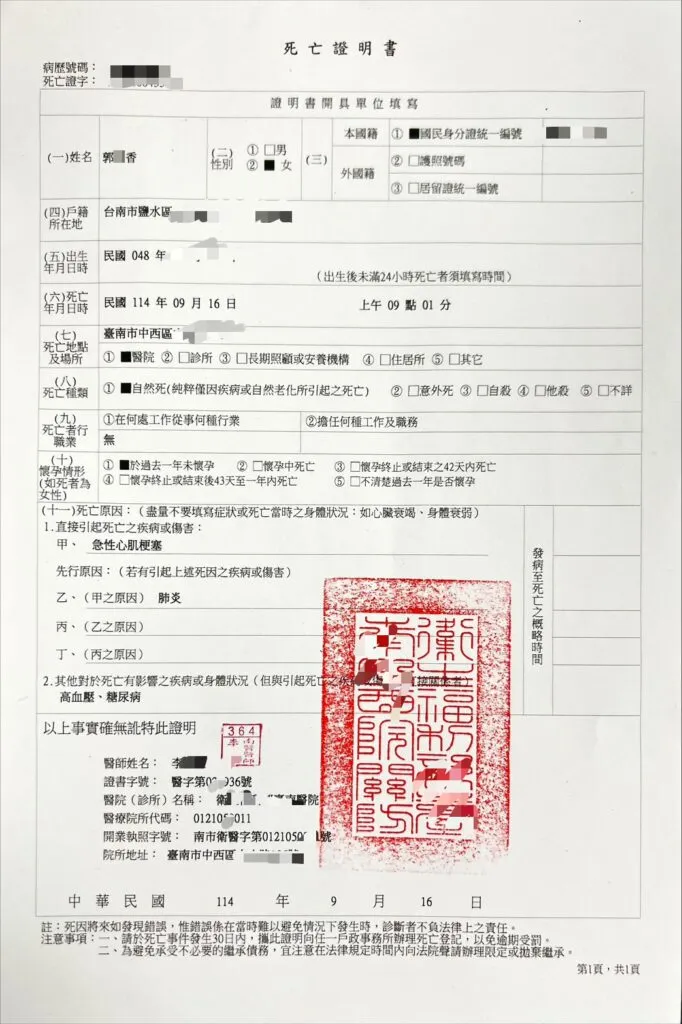 死亡證明書
病歷號碼：
死亡證字：
證明書開具單位填寫
(一)姓名 郭 香
(二)性別 ①□男 ②■女
(三) 本國籍 ①■國民身分證統一編號
外國籍 ②□護照號碼
③□居留證統一編號
(四)戶籍所在地 台南市鹽水區
(五)出生年月日時 民國 048 年
(出生後未滿24小時死亡者須填寫時間)
(六)死亡年月日時 民國 114 年 09 月 16 日 上午 09 點 01 分
(七)死亡地點及場所 臺南市中西區
①■醫院 ②□診所 ③□長期照顧或安養機構 ④□住居所 ⑤□其它
(八)死亡種類 ①■自然死(純粹僅因疾病或自然老化所引起之死亡) ②□意外死 ③□自殺 ④□他殺 ⑤□不詳
(九)死亡者行職業 ①在何處工作從事何種行業 ②擔任何種工作及職務
無
(十)懷孕情形(如死者為女性) ①■於過去一年未懷孕 ②□懷孕中死亡 ③□懷孕終止或結束之42天內死亡
④□懷孕終止或結束後43天至一年內死亡 ⑤□不清楚過去一年是否懷孕
(十一)死亡原因：(盡量不要填寫症狀或死亡當時之身體狀況：如心臟衰竭、身體衰弱)
發病至死亡之概略時間
1.直接引起死亡之疾病或傷害：
甲、 急性心肌梗塞
先行原因：(若有引起上述死因之疾病或傷害)
乙、(甲之原因) 肺炎
丙、(乙之原因)
丁、(丙之原因)
2.其他對於死亡有影響之疾病或身體狀況(但與引起死亡之疾病或傷 直接關係者)
高血壓、糖尿病
以上事實確無訛特此證明
364
醫師姓名： 李
證書字號： 醫字第0 936號
醫院(診所)名稱： 衛 醫院
醫療院所代碼： 01210 011
開業執照字號： 南市衛醫字第0121050 1號
院所地址： 臺南市中西區
中華民國 114 年 9 月 16 日
註：死因將來如發現錯誤，惟錯誤係在當時難以避免情況下發生時，診斷者不負法律上之責任。
注意事項：一、請於死亡事件發生30日內，攜此證明向任一戶政事務所辦理死亡登記，以免逾期受罰。
二、為避免承受不必要的繼承債務，宜注意在法律規定時間內向法院聲請辦理限定或拋棄繼承。
第1頁，共1頁